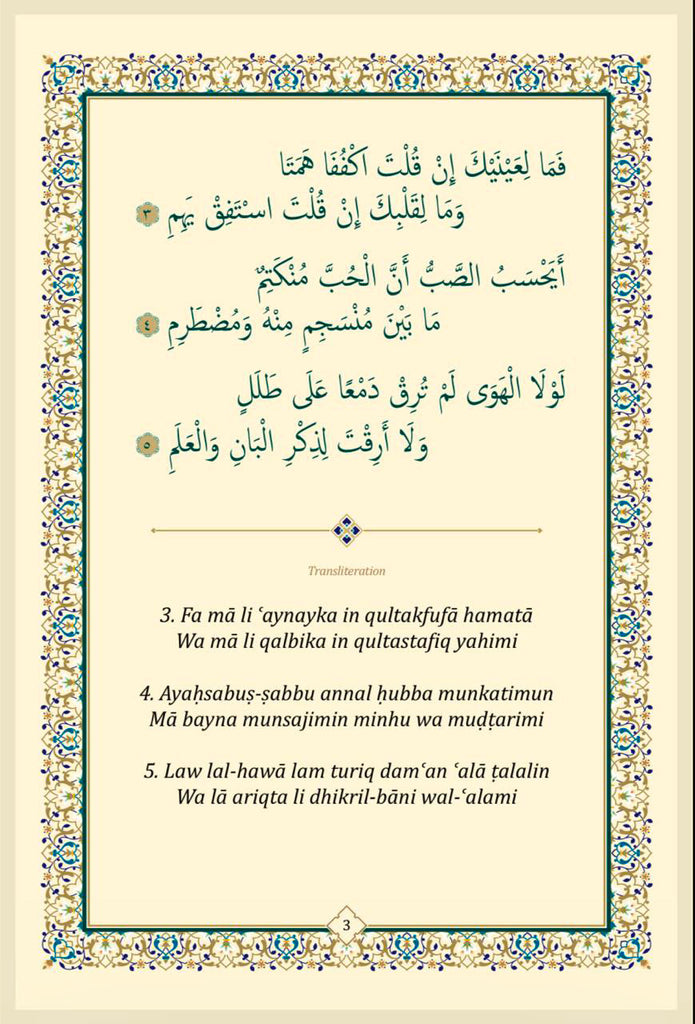 فَمَا لِعَيْنَيْكَ إِنْ قُلْتَ اكْفُفَا هَمَتَا
وَمَا لِقَلْبِكَ إِنْ قُلْتَ اسْتَفِقْ يَهِمِ ٣
أَيَحْسَبُ الصَّبُّ أَنَّ الْحُبَّ مُنْكَتِمٌ
مَا بَيْنَ مُنْسَجِمٍ مِنْهُ وَمُضْطَرِمِ ٤
لَوْلَا الْهَوَى لَمْ تُرِقْ دَمْعًا عَلَى طَلَلٍ
وَلَا أَرِقْتَ لِذِكْرِ الْبَانِ وَالْعَلَمِ ٥
Transliteration
3. Fa mā li ʿaynayka in qultakfufā hamatā
Wa mā li qalbika in qultastafiq yahimi
4. Ayaḥsabuṣ-ṣabbu annal ḥubba munkatimun
Mā bayna munsajimin minhu wa muḍṭarimi
5. Law lal-hawā lam turiq damʿan ʿalā ṭalalin
Wa lā ariqta li dhikril-bāni wal-ʿalami
3